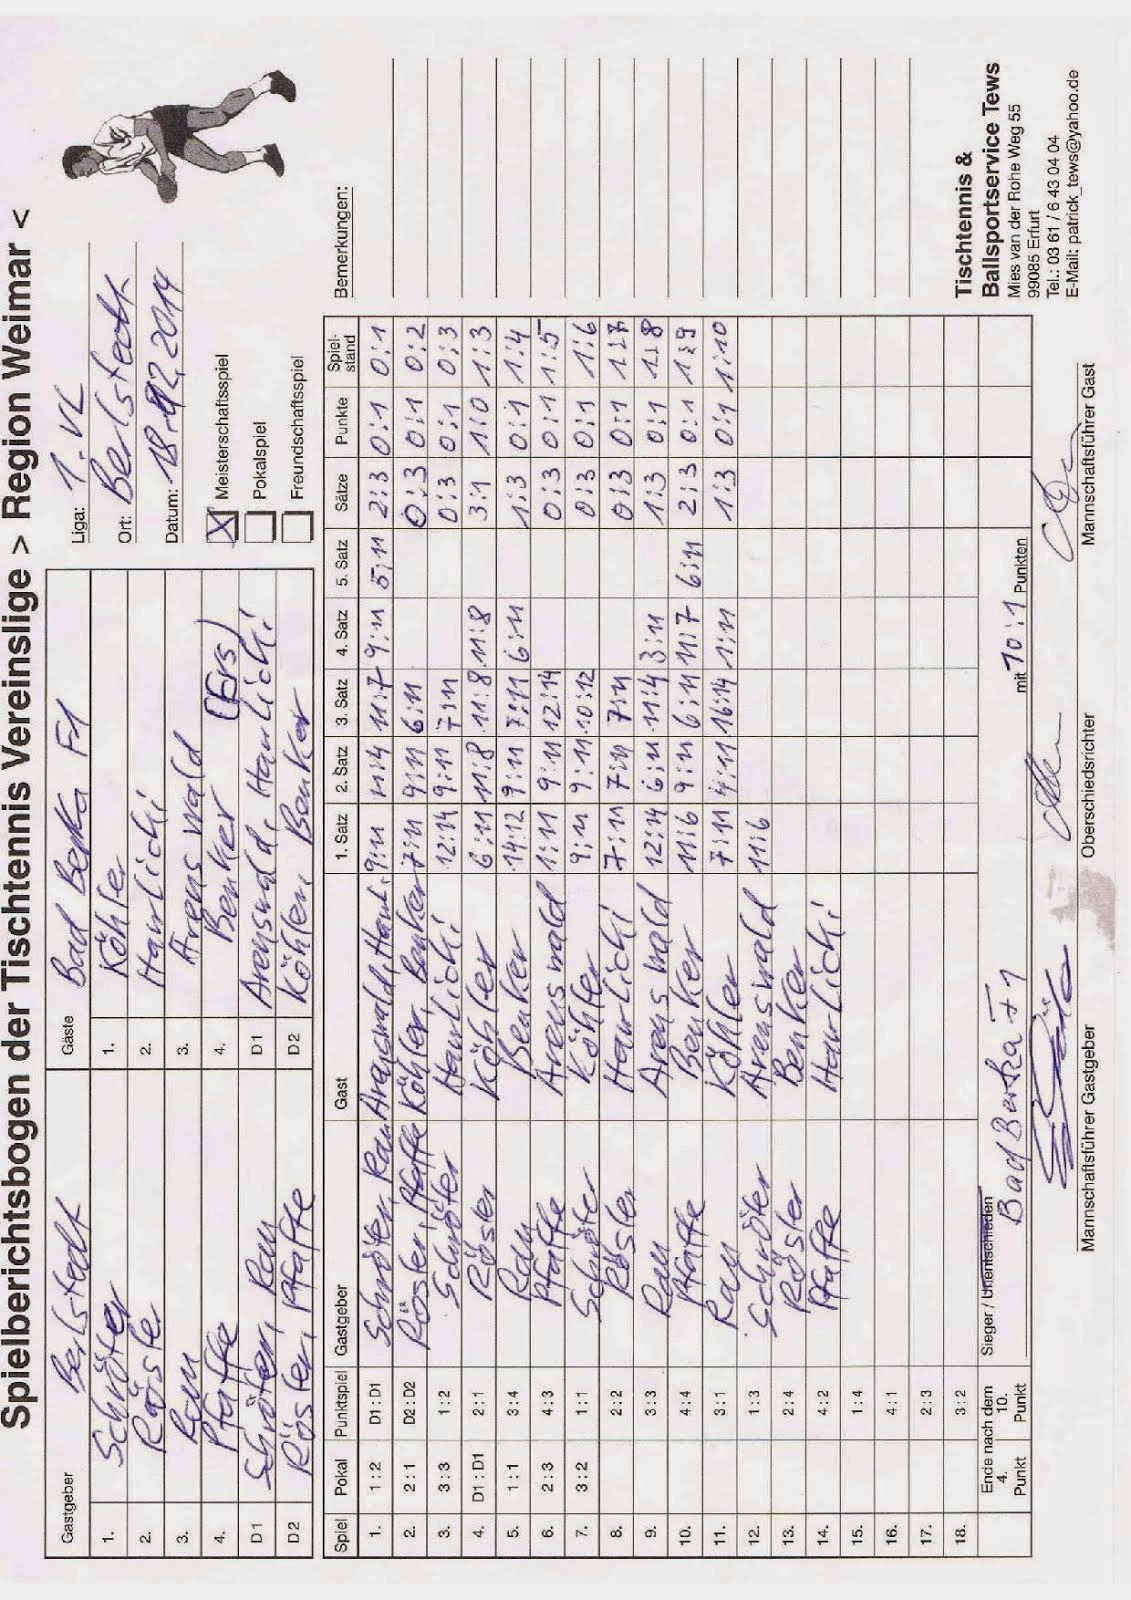 Spielberichtsbogen der Tischtennis Vereinslige > Region Weimar <
Gastgeber Berlstedt Gäste Bad Berka F1
1. Schröter 1. Köhler
2. Rösler 2. Haurlichi
3. Rau 3. Arenswald
4. Pfaffe 4. Benker (Ers)
D1 Schröter, Rau D1 Arenswald, Haurlichi
D2 Rösler, Pfaffe D2 Köhler, Benker
Liga: 1. VL
Ort: Berlstedt
Datum: 18.12.2014
X Meisterschaftsspiel
Pokalspiel
Freundschaftsspiel
Spiel Pokal Punktspiel Gastgeber Gast 1. Satz 2. Satz 3. Satz 4. Satz 5. Satz Sätze Punkte Spiel-stand Bemerkungen:
1. 1 : 2 D1 : D1 Schröter, Rau Arenswald, Haurl. 9:11 11:4 11:7 9:11 5:11 2:3 0:1 0:1
2. 2 : 1 D2 : D2 Rösler, Pfaffe Köhler, Benker 7:11 9:11 6:11 0:3 0:1 0:2
3. 3 : 3 1 : 2 Schröter Haurlichi 12:14 9:11 7:11 0:3 0:1 0:3
4. D1 : D1 2 : 1 Rösler Köhler 6:11 11:8 11:8 11:8 3:1 1:0 1:3
5. 1 : 1 3 : 4 Rau Benker 14:12 9:11 7:11 6:11 1:3 0:1 1:4
6. 2 : 3 4 : 3 Pfaffe Arenswald 1:11 9:11 12:14 0:3 0:1 1:5
7. 3 : 2 1 : 1 Schröter Köhler 9:11 9:11 10:12 0:3 0:1 1:6
8. 2 : 2 Rösler Haurlichi 7:11 7:11 7:11 0:3 0:1 1:7
9. 3 : 3 Rau Arenswald 12:14 6:11 11:4 3:11 1:3 0:1 1:8
10. 4 : 4 Pfaffe Benker 11:6 9:11 6:11 11:7 6:11 2:3 0:1 1:9
11. 3 : 1 Rau Köhler 7:11 4:11 16:14 1:11 1:3 0:1 1:10
12. 1 : 3 Schröter Arenswald 11:6
13. 2 : 4 Rösler Benker
14. 4 : 2 Pfaffe Haurlichi
15. 1 : 4
16. 4 : 1
17. 2 : 3
18. 3 : 2
Ende nach dem
4. Punkt 10. Punkt
Sieger / Unentschieden Bad Berka F1 mit 10:1 Punkten
Mannschaftsführer Gastgeber Oberschiedsrichter Mannschaftsführer Gast
Tischtennis &
Ballsportservice Tews
Mies van der Rohe Weg 55
99085 Erfurt
Tel.: 03 61 / 6 43 04 04
E-Mail: patrick_tews@yahoo.de